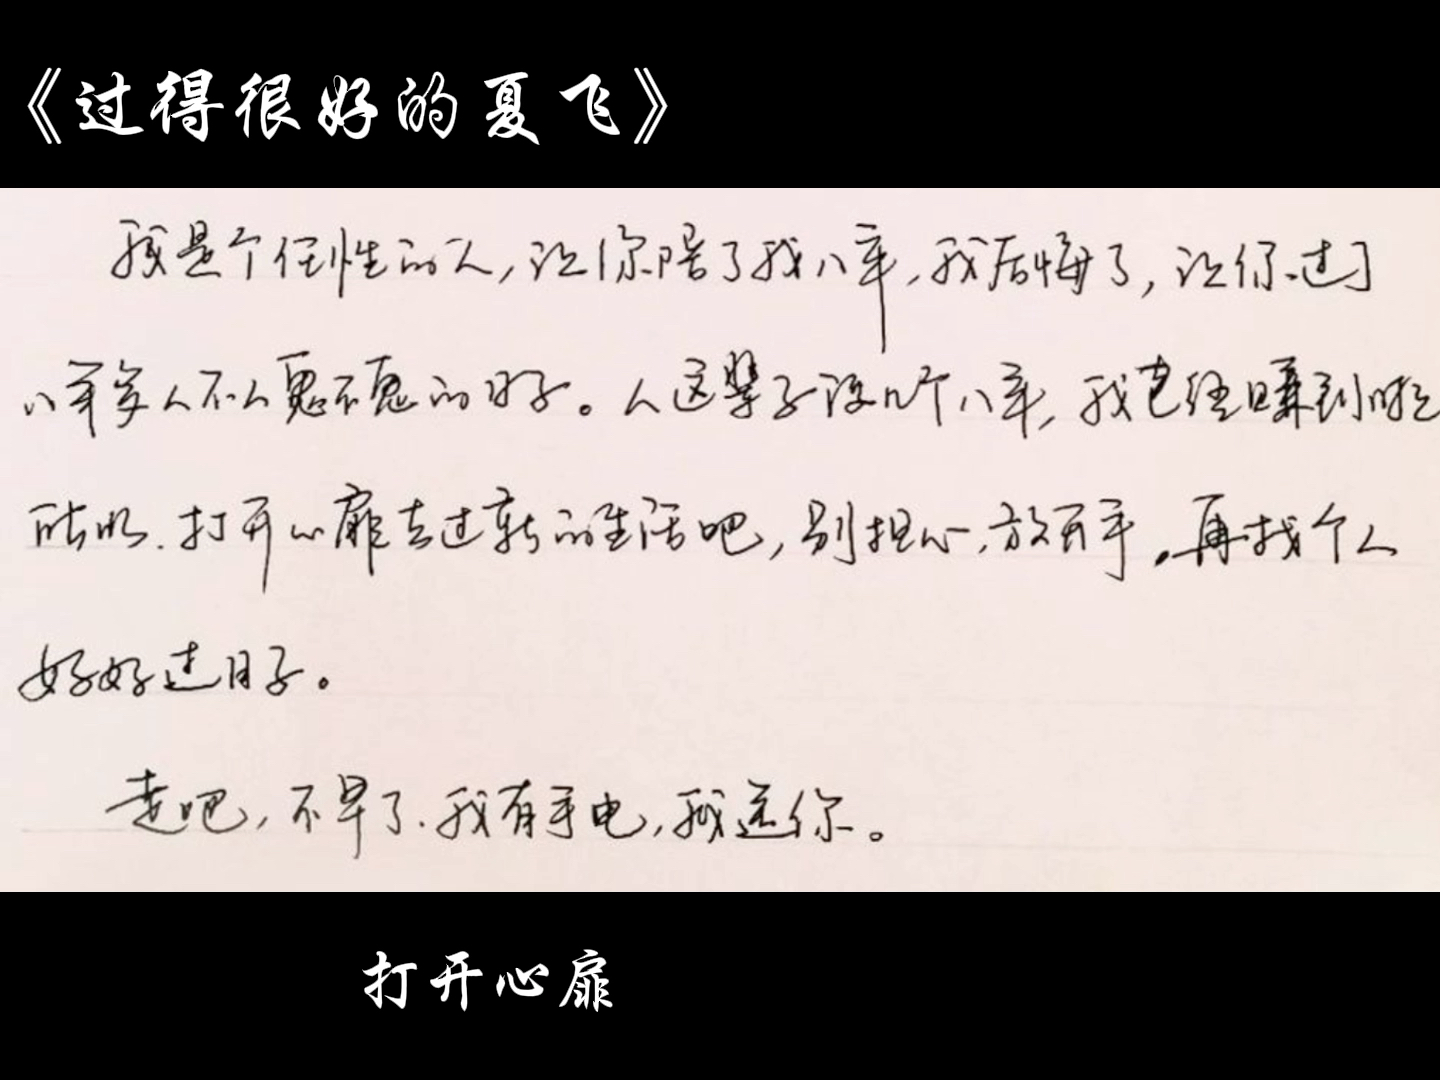 《过得很好的夏飞》
我是个任性的人，让你陪了我八年，我后悔了，让你过了
八年多人不人鬼不鬼的日子。人这辈子没几个八年，我已经赚到啦
所以，打开心扉去过新的生活吧，别担心，放开手，再找个人
好好过日子。
走吧，不早了，我有手电，我送你。
打开心扉